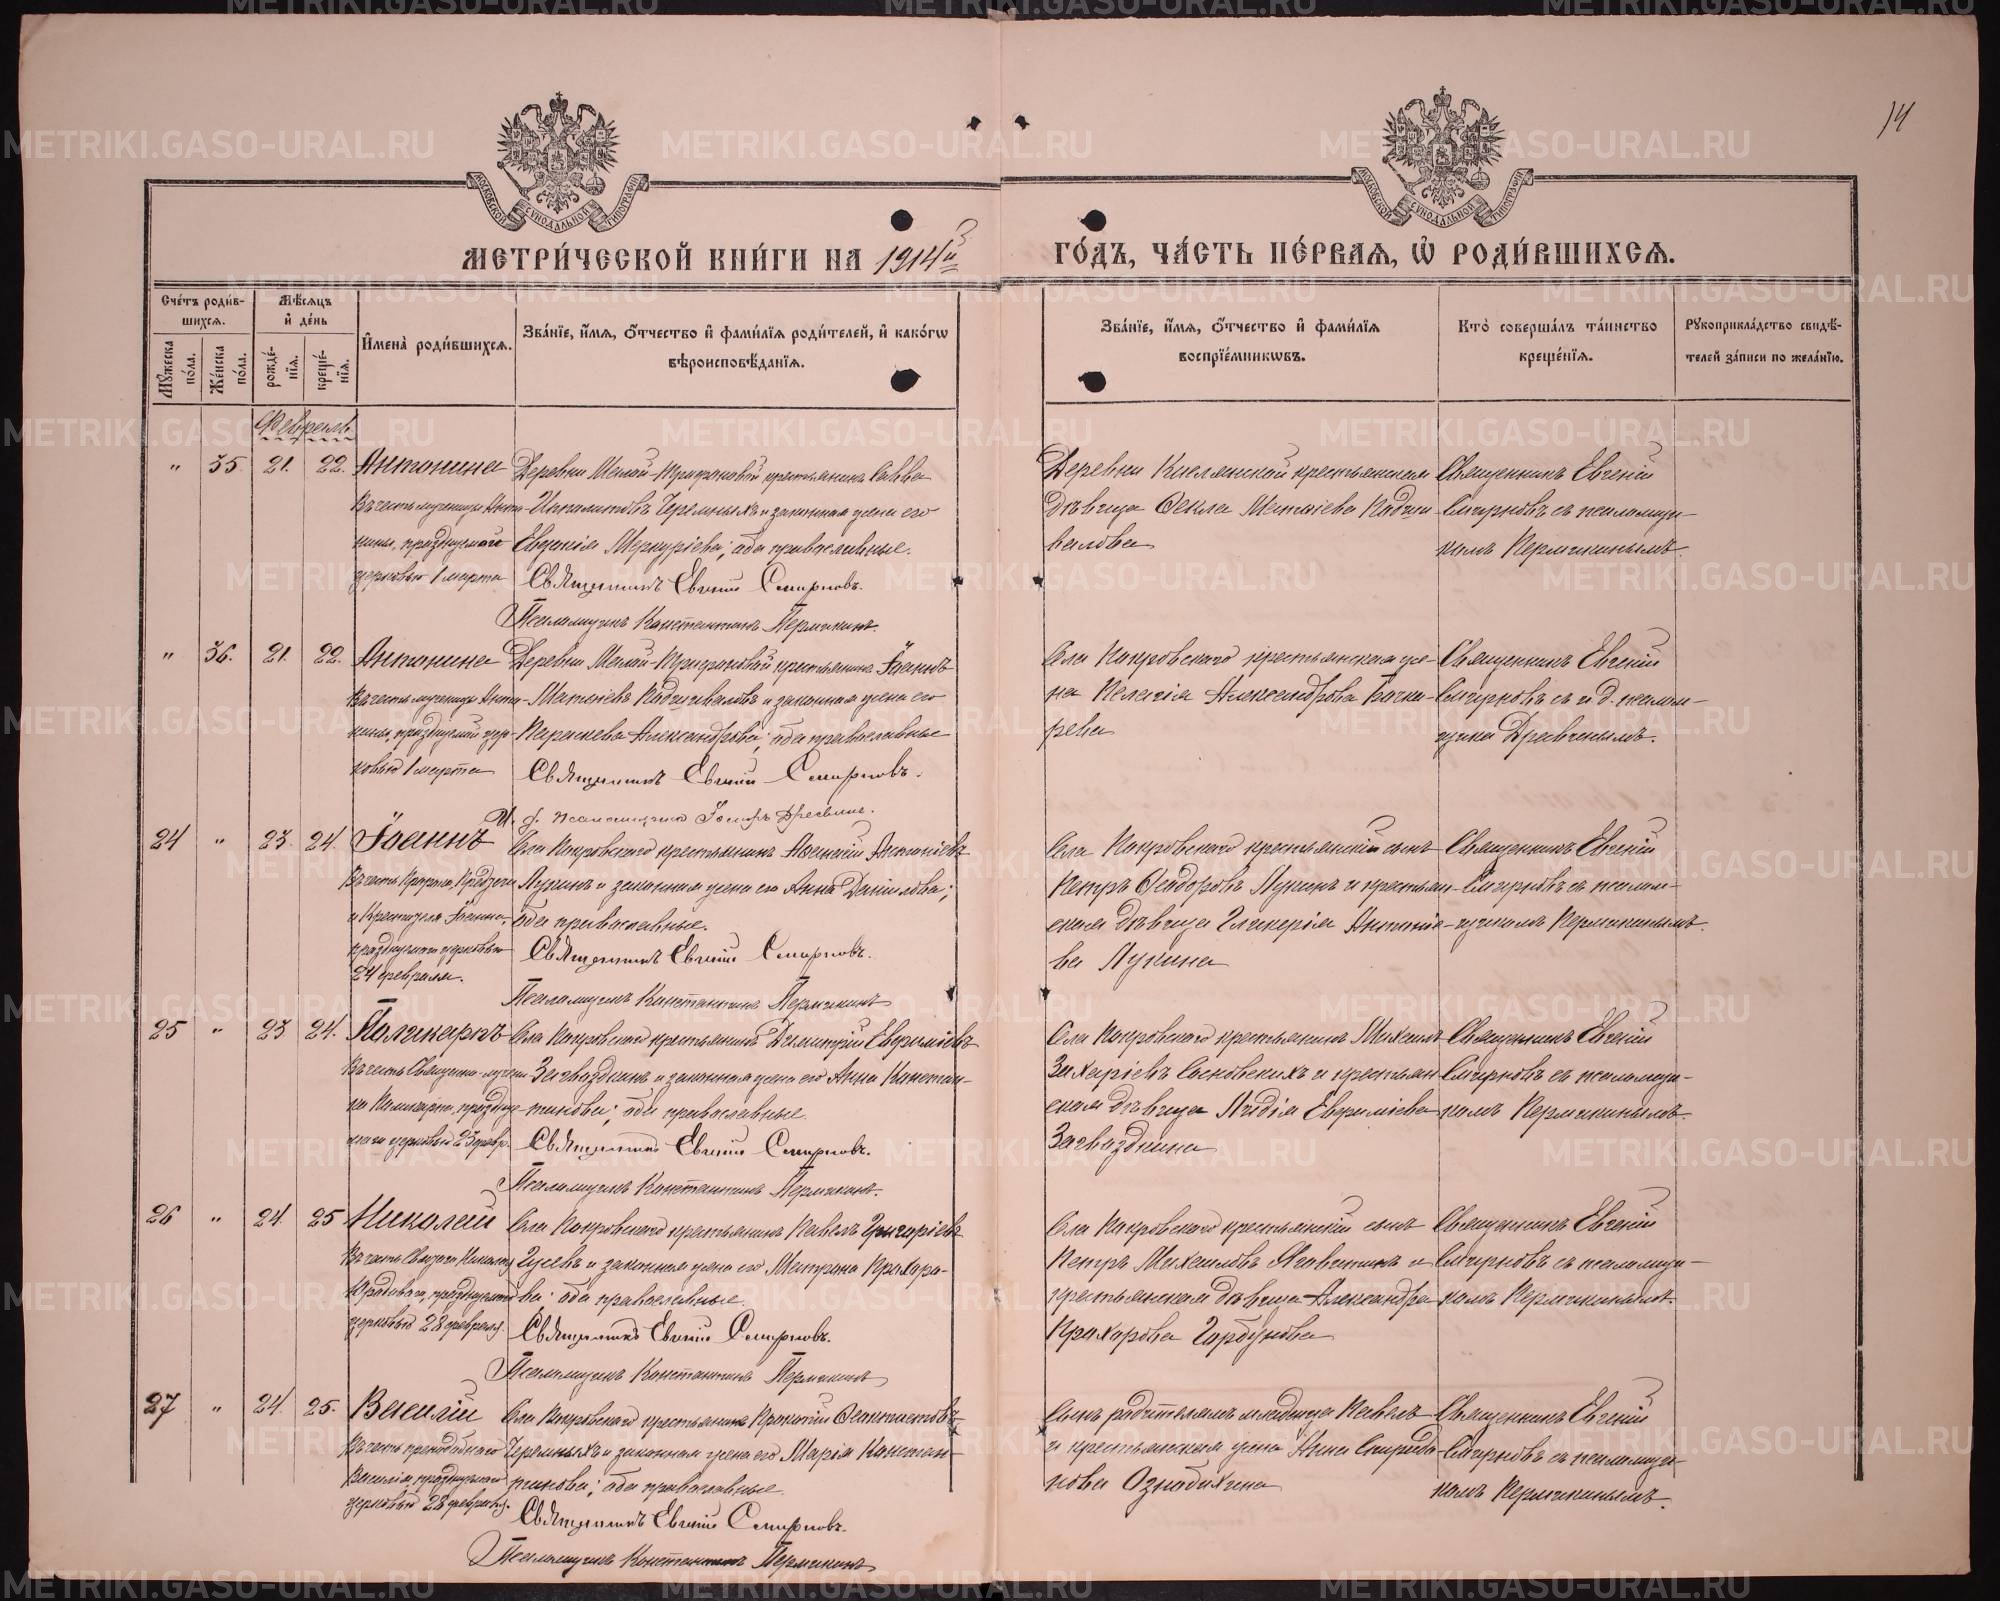 14
МОСКОВСКОЙ СѴНОДАЛЬНОЙ ТИПОГРАФІИ
МОСКОВСКОЙ СѴНОДАЛЬНОЙ ТИПОГРАФІИ
МЕТРИ́ЧЕСКОЙ КНИ́ГИ НА 1914й ГО́ДЪ, ЧА́СТЬ ПЕ́РВАѦ, Ѡ҆ РОДИ́ВШИХСѦ.
Сче́тъ роди́в-
шихсѧ.
Мꙋ́жеска по́ла.
Же́нска по́ла.
Мѣ́сѧцъ
и҆ де́нь
рожде́-
нїѧ.
креще́-
нїѧ.
И҆мена̀ роди́вшихсѧ.
Зва́нїе, и҆́мѧ, ѻ҆́тчество и҆ фами́лїѧ роди́телей, и҆ како́гѡ
вѣроисповѣ́данїѧ.
Зва́нїе, и҆́мѧ, ѻ҆́тчество и҆ фами́лїѧ
воспрїе́мникѡвъ.
Кто̀ соверша́лъ та́инство
креще́нїѧ.
Рꙋкоприкла́дство свидѣ́-
телей за́писи по жела́нїю.
Февраль
" 35. 21. 22. Антонина
Въ честь мученицы Анто-
нины, празднуемой
церковью 1 марта
Деревни Малой-Трифоновой крестьянинъ Савва
Ипполитовъ Черемныхъ и законная жена его
Евдокія Меркуріева; оба православные.
Священникъ Евгеній Смирновъ.
Псаломщикъ Константинъ Пермикинъ.
Деревни Киселянской крестьянская
дѣвица Ѳекла Матѳіева Подши-
валова
Священникъ Евгеній
Смирновъ съ псаломщи-
комъ Пермикинымъ.
" 36. 21. 22. Антонина
Въ честь мученицы Анто-
нины, празднуемой цер-
ковью 1 марта
Деревни Малой-Трифоновой крестьянинъ Іоаннъ
Матѳіевъ Подшиваловъ и законная жена его
Параскева Александрова; оба православные
Священникъ Евгеній Смирновъ.
И. д. псаломщика
Села Покровскаго крестьянская же-
на Пелагія Александрова Бачи-
рева
Священникъ Евгеній
Смирновъ съ и. д. псалом-
щика
24 " 23. 24. Іоаннъ
Въ честь Пророка, Предтечи
и Крестителя Іоанна,
празднуемаго церковью
24 февраля.
Села Покровскаго крестьянинъ Антоніевъ
Лукинъ и законная жена его Анна Даніилова;
оба православные.
Священникъ Евгеній Смирновъ.
Псаломщикъ Константинъ Пермикинъ
Села Покровскаго крестьянскій сынъ
Петръ Ѳеодоровъ Лукинъ и крестьян-
ская дѣвица Гликерія Антоніе-
ва Лукина
Священникъ Евгеній
Смирновъ съ псалом-
щикомъ Пермикинымъ.
25 " 23 24. Поликарпъ
Въ честь Священно-мучени-
ка Поликарпа, праздну-
емаго церковью 23 февр.
Села Покровскаго крестьянинъ Димитрій Евфиміевъ
Загвоздкинъ и законная жена его Анна Констан-
тинова; оба православные
Священникъ Евгеній Смирновъ.
Псаломщикъ Константинъ Пермикинъ.
Села Покровскаго крестьянинъ Михаилъ
Захаріевъ Сосновскихъ и крестьян-
ская дѣвица Лидія Евфиміева
Загвоздкина
Священникъ Евгеній
Смирновъ съ псаломщи-
комъ Пермикинымъ.
26 " 24. 25 Николай
Въ честь Святого Николая
Юродиваго, празднуемаго
церковью 28 февраля.
Села Покровскаго крестьянинъ Павелъ Григоріевъ
Гусевъ и законная жена его Матрона Прохоро-
ва; оба православные.
Священникъ Евгеній Смирновъ.
Псаломщикъ Константинъ Пермикинъ
Села Покровскаго крестьянскій сынъ
Петръ Михаиловъ и
крестьянская дѣвица Александра
Прохорова Горбунова
Священникъ Евгеній
Смирновъ съ псаломщи-
комъ Пермикинымъ.
27 " 24. 25. Василій
Въ честь преподобнаго
Василія, празднуемаго
церковью 28 февраля.
Села Покровскаго крестьянинъ Прокопій
Черемныхъ и законная жена его Марія Констан-
тинова; оба православные.
Священникъ Евгеній Смирновъ.
Псаломщикъ Константинъ Пермикинъ
Сынъ родителямъ младенца Павелъ
и крестьянская жена Анна Спиридо-
нова Ознобихина
Священникъ Евгеній
Смирновъ съ псаломщи-
комъ Пермикинымъ.
METRIKI.GASO-URAL.RU